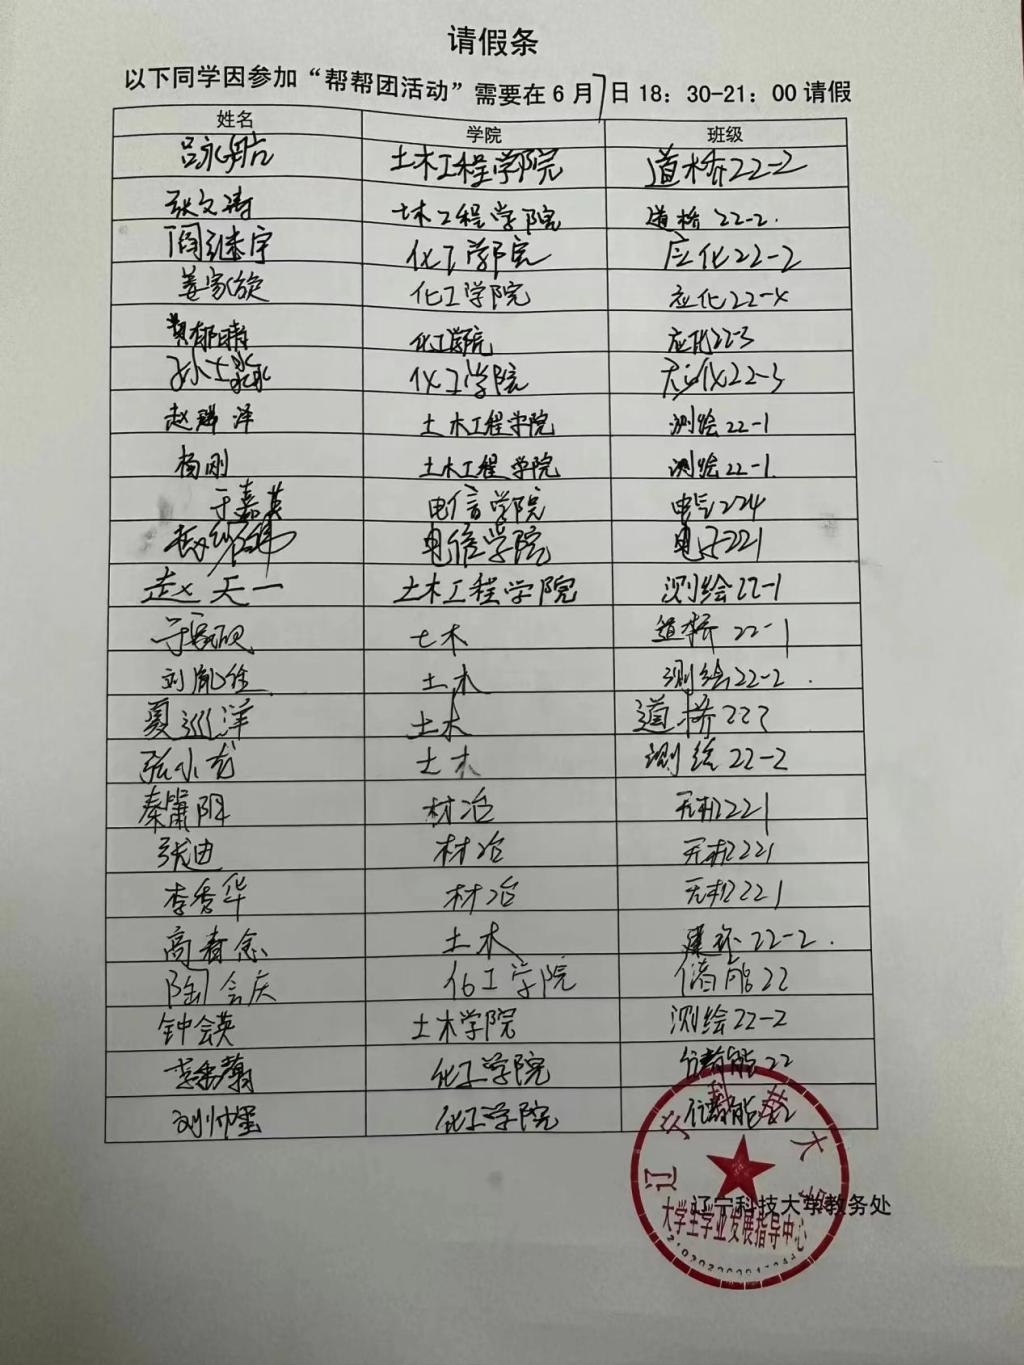 请假条
以下同学因参加“帮帮团活动”需要在6月7日18：30-21：00请假
姓名 学院 班级
吕永航 土木工程学院 道桥22-2
张文涛 土木工程学院 道桥22-2.
闫继宇 化工学院 应化22-2
姜家旋 化工学院 应化22-4
黄郁晴 化工学院 应化22-3
孙士淼 化工学院 应化22-3
赵瑞泽 土木工程学院 测绘22-1
杨刚 土木工程学院 测绘22-1.
于嘉英 电信学院 电气224
赵 电信学院 电子221
赵天一 土木工程学院 测绘22-1
于家砚 土木 道桥22-1
刘胤徐 土木 测绘22-2.
夏巡洋 土木 道桥222
张小龙 土木 测绘22-2
秦箫阳 材冶 无机221
张迪 材冶 无机221
李秀华 材冶 无机221
高春念 土木 建环22-2.
陶会庆 化工学院 储能22
钟会英 土木学院 测绘22-2
李 化工学院 储能22
刘帅 化工学院 储能22
辽宁科技大学
辽宁科技大学教务处
大学生学业发展指导中心